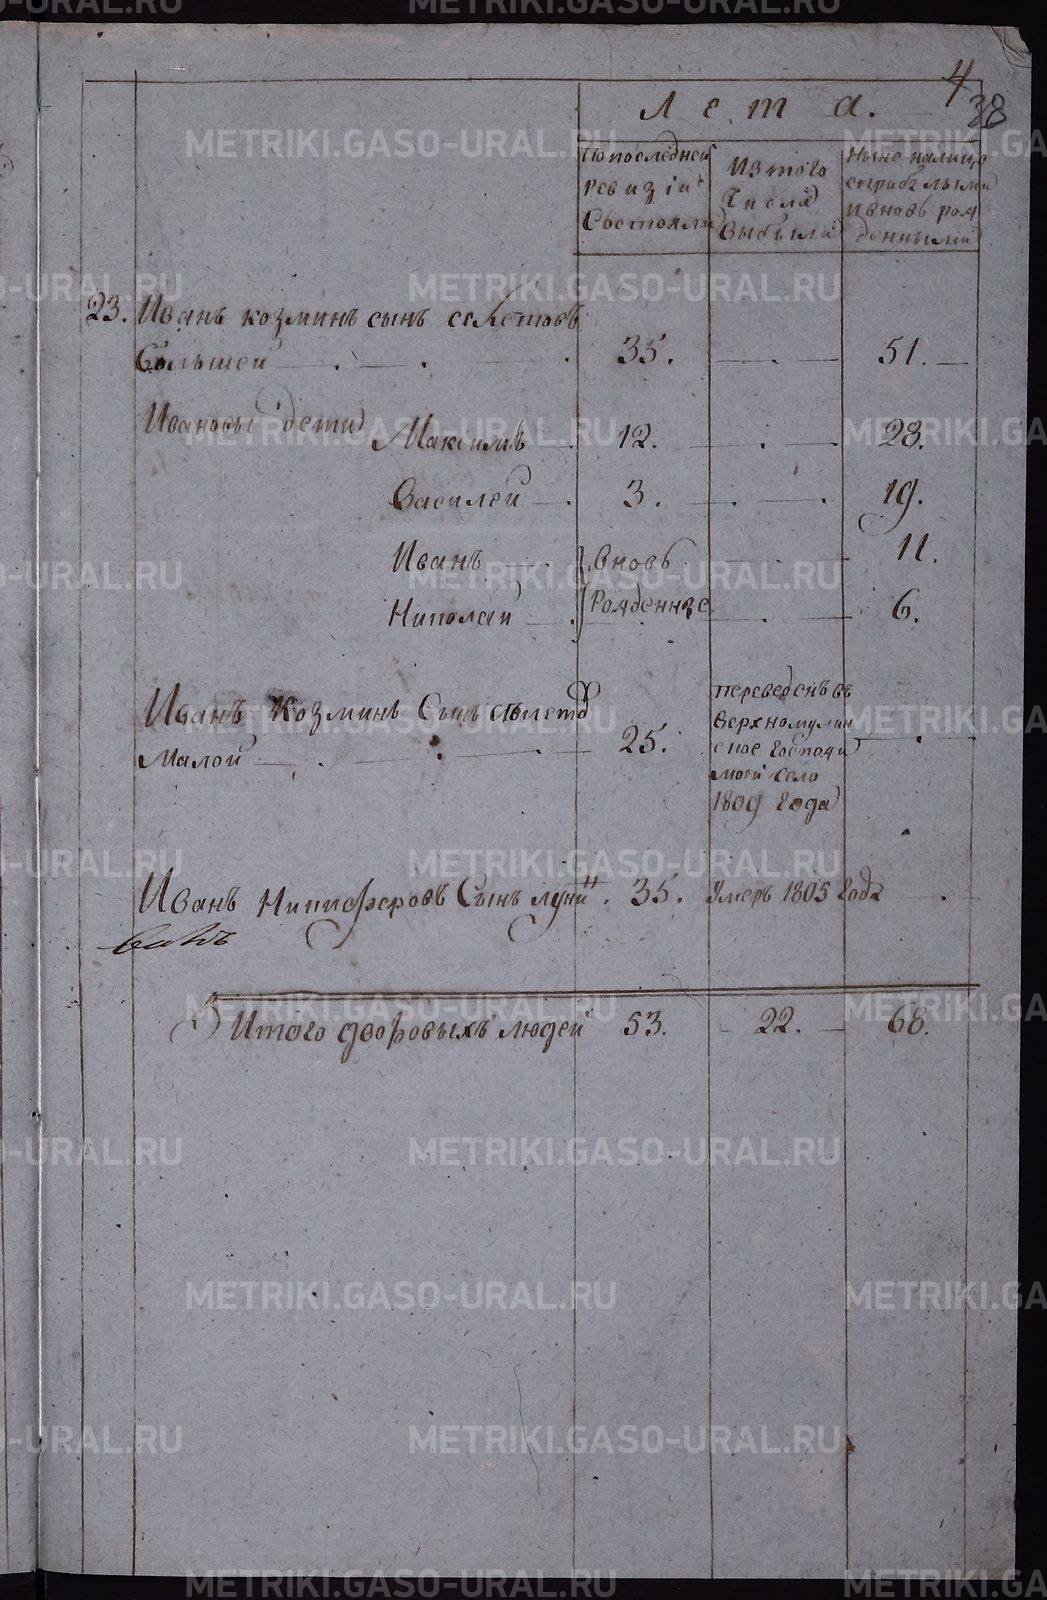 4
38
Лета.
По последней
ревизіи
Состояли
Из того
Числа
Выбыли
Ныне налицо
с прибылыми
и вновь рож
денными
23. Иванъ козминъ сынъ
Большей 35. 51.
Ивановы дети Максимъ 12. 28.
Василей 3. 19.
Иванъ вновь 11.
Николай Рожденные 6.
Иванъ Козминъ Сынъ
Малой 25.
переведенъ въ
верхномулин
ское Господи
моей село
1809 Года
Иванъ Никифоровъ Сынъ Луни 35. Умеръ 1805 Года
Итого дворовыхъ людей 53. 22. 68.
METRIKI.GASO-URAL.RU